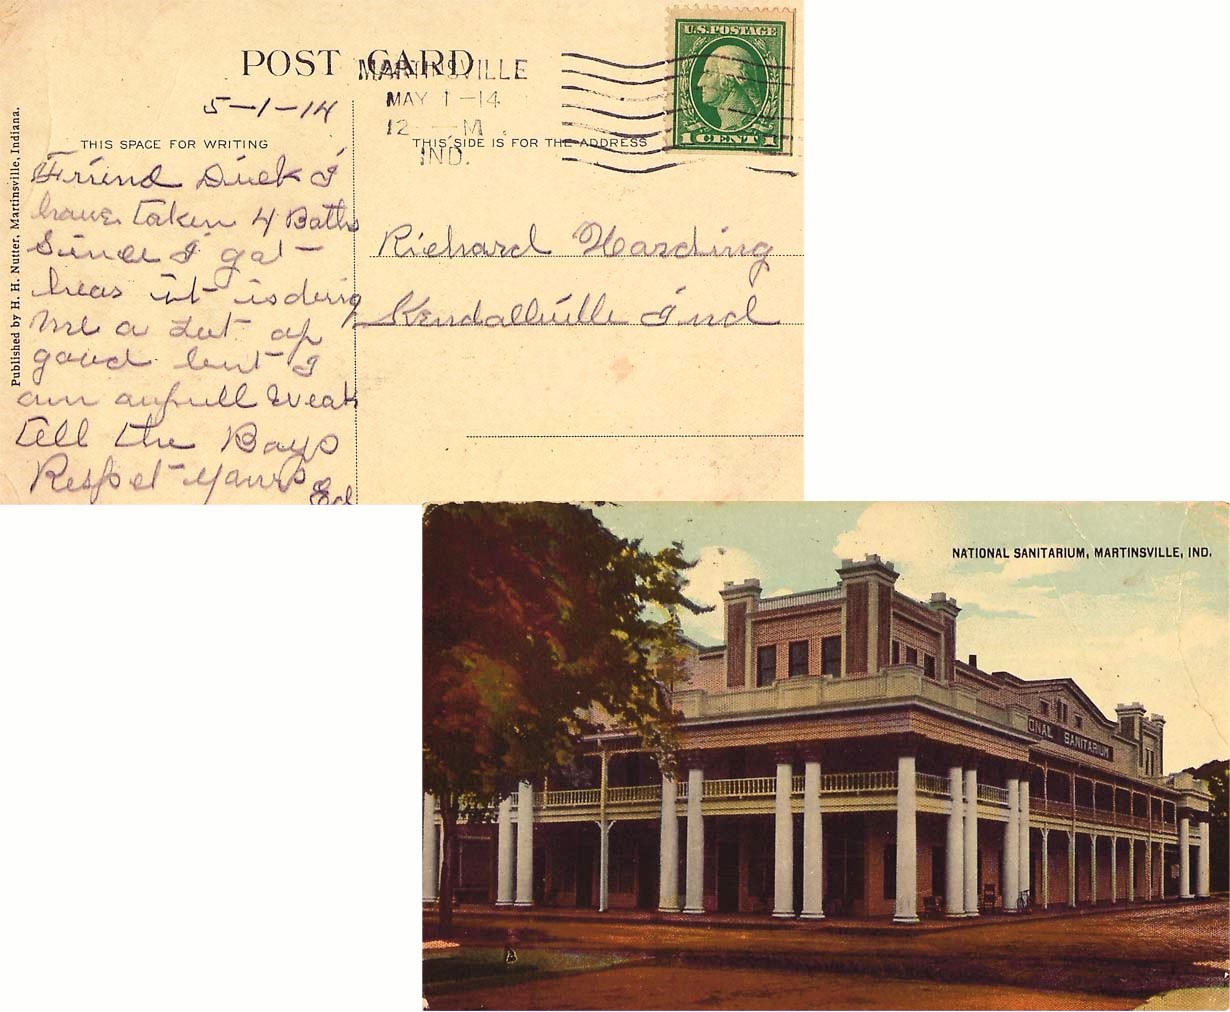 POST CARD
MARTINSVILLE
MAY 1-14
12 M
IND.
U.S. POSTAGE
1 CENT 1
5-1-14
THIS SPACE FOR WRITING
THIS SIDE IS FOR THE ADDRESS
Published by H. H. Nutter, Martinsville, Indiana.
Friend Dick I
have taken 4 Baths
Since I got
hear it is doing
me a Lot of
good but I
am awfull Weak
tell the Boys
Respet Yours
Ed
Richard Harding
Kendallville Ind
NATIONAL SANITARIUM, MARTINSVILLE, IND.
ONAL SANITARIUM